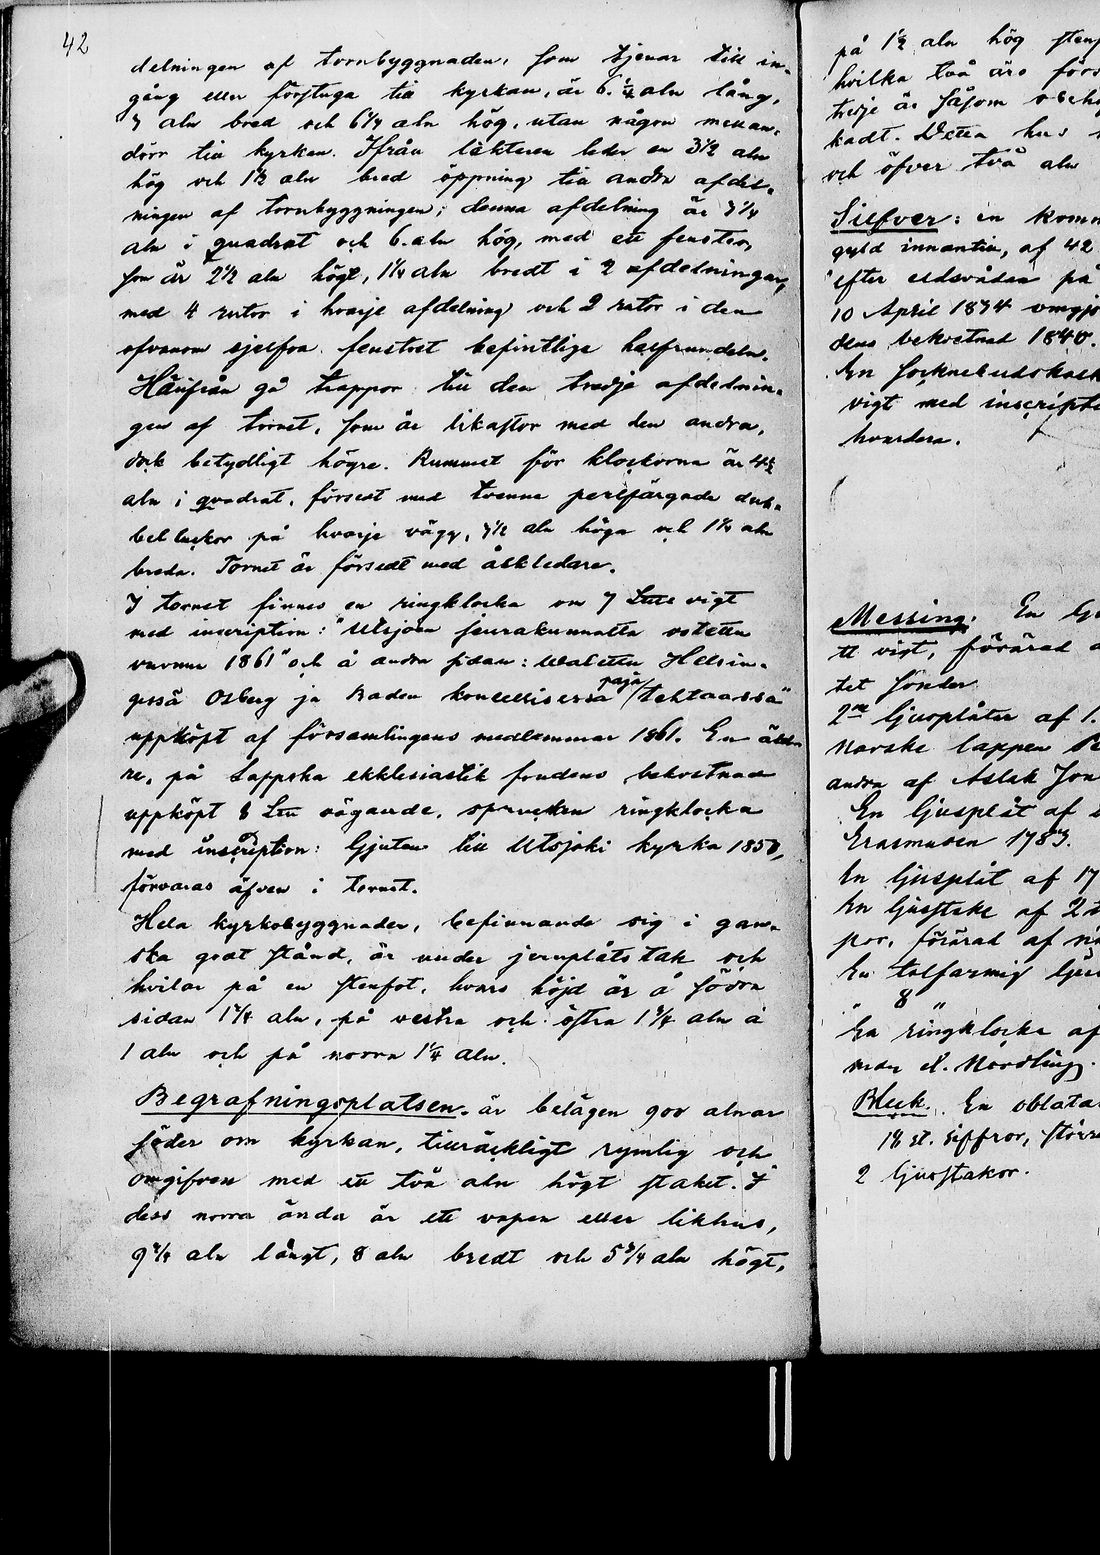 42
delningen af tornbyggnaden, som tjenar till in-
gång eller förstuga till kyrkan, är 6 1/4 aln lång,
7 aln bred och 6 1/4 aln hög, utan någon mellan-
dörr till kyrkan. Ifrån läktaren leder en 3 1/2 aln
hög och 1 1/2 aln bred öppning till andra afdel-
ningen af tornbyggningen; denna afdelning är 7 1/4
aln i quadrat och 6 aln hög, med ett fenster,
som är 2 1/2 aln högt, 1 1/4 aln bredt i 2 afdelningar,
med 4 rutor i hvarje afdelning och 2 rutor i den
ofvanom sjelfva fenstret befintliga halfrundeln.
Härifrån gå trappor till den tredje afdelnin-
gen af tornet, som är lika stor med den andra,
dock betydligt högre. Rummet för klockorna är 4 1/2
aln i quadrat, försedt med tvenne perlfärgade dub-
belluckor på hvarje vägg, 3 1/2 aln höga och 1 1/4 aln
breda. Tornet är försedt med åskledare.
I tornet finnes en ringklocka om 7 vigt
med inscription: "Utsjoen seurakunnalta ostettu
vuonna 1861" och å andra sidan: "Walettu Helsin-
gissä Osberg ja Baden konepajatehtaassa"
uppköpt af församlingens medlemmar 1861. En äld-
re, på Lappska ekklesiastik fondens bekostnad
uppköpt 8 vägande, sprucken ringklocka
med inscription: Gjuten till Utsjoki kyrka 1850,
förvaras äfven i tornet.
Hela kyrkobyggnaden, befinnande sig i gan-
ska godt stånd, är under jernplåtstak och
hvilar på en stenfot, hvars höjd är å södra
sidan 1 1/4 aln, på vestra och östra 1 3/4 aln à
1 aln och på norra 1 1/4 aln.
Begrafningsplatsen är belägen 900 alnar
söder om kyrkan, tillräckligt rymlig och
omgifven med ett två aln högt staket. I
dess norra ända är ett vapen eller likhus,
9 3/4 aln långt, 8 aln bredt och 5 3/4 aln högt,
på 1 1/2 aln hög sten
hvilka två äro förs
tredje är såsom
kadt. Detta hus
och öfver två aln
Silfver: en
gyld innantill, af 42
efter eldsvådan på
10 April 1834
dens bekostnad 1840.
En
vigt med
hvardera.
Messing: En
vigt, förärad
tet sönder
2ne ljusplåter af 1.
Norske lappen
andra af Aslak
En ljusplåt af
Erasmusen 1783.
En ljusplåt af 17
En ljusstake af 2
por, förärad af
En tolfarmig
" 8 "
En ringklocka af
man Nordling.
Bleck. En oblat
18 st. siffror, större
2 ljusstakor.